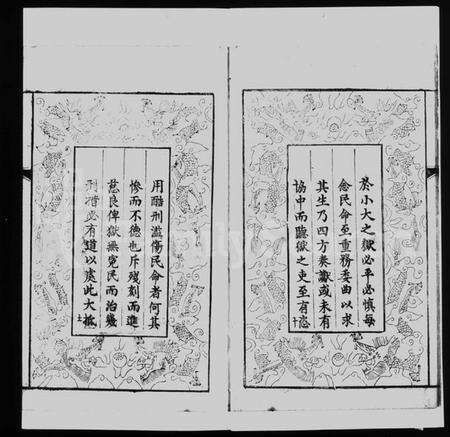 於小大之獄必平必慎每
念民命至重務委曲以求
其生乃四方奏讞或未有
協中而聽獄之吏至有恣
十
用酷刑濫傷民命者何其
慘而不德也斥殘刻而進
慈良俾獄無冤民而治幾
刑措必有道以處此大
十一